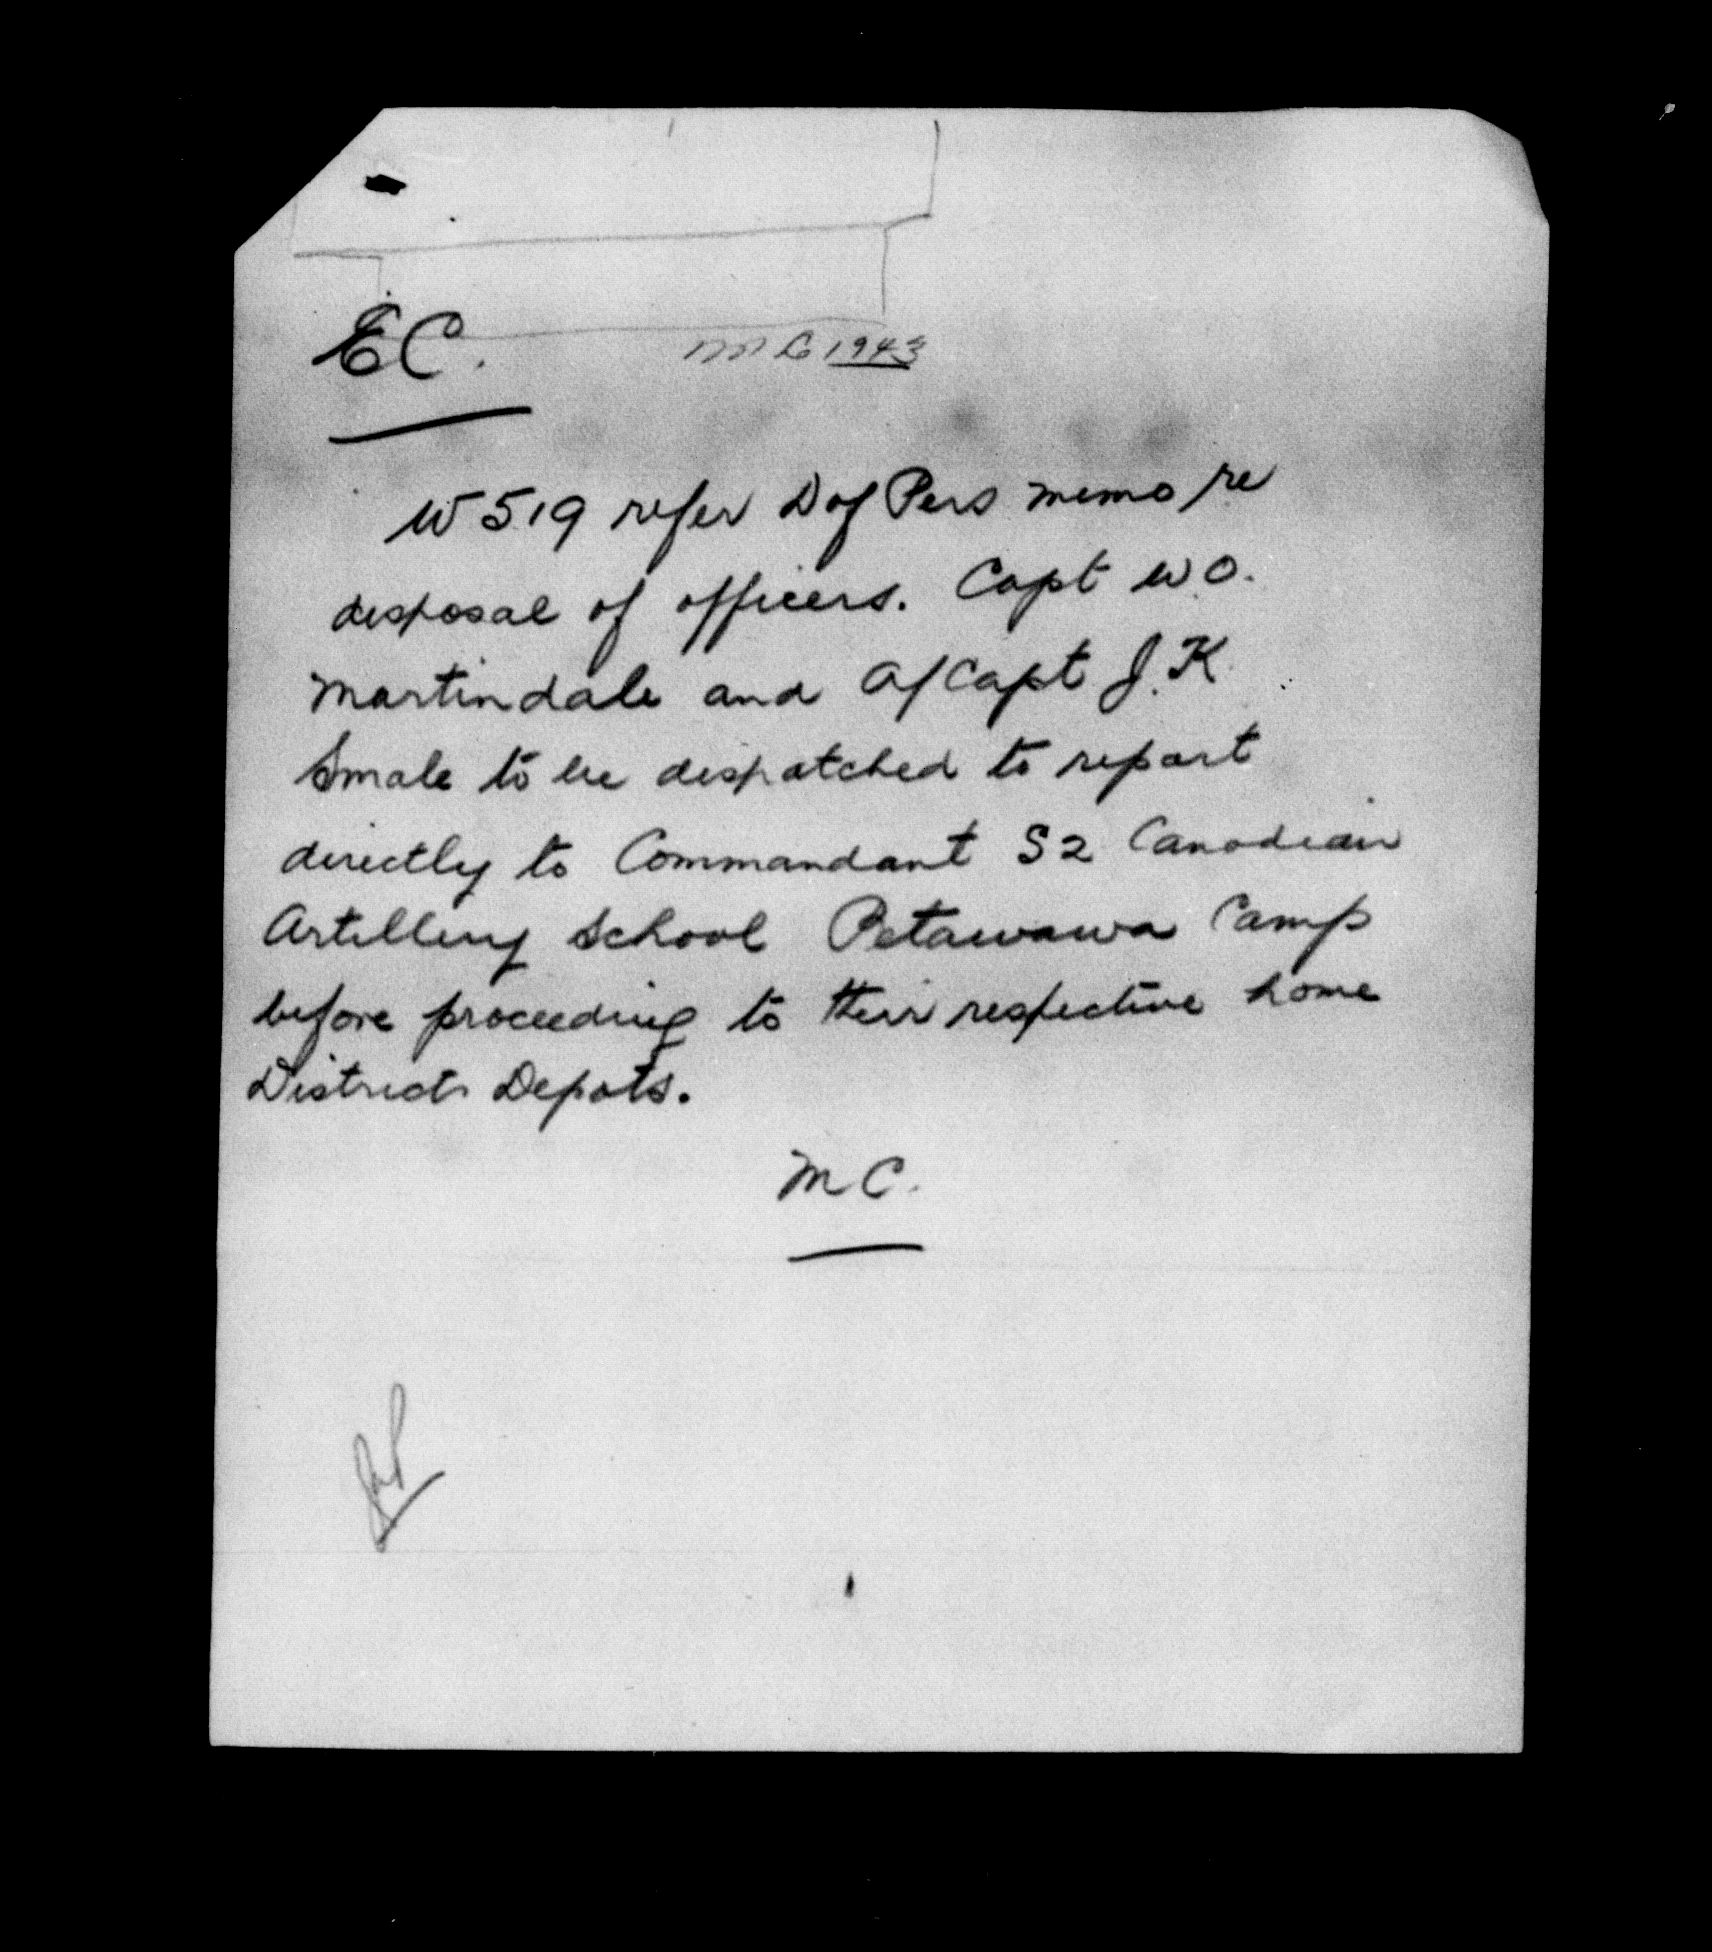 EC.
1943
W519 refer D of Pers memo re
disposal of officers. Capt W.O.
Martindale and A/Capt J.K.
Smale to be dispatched to report
directly to Commandant S2 Canadian
Artillery School Petawawa Camp
before proceeding to their respective home
Districts Depots.
MC.